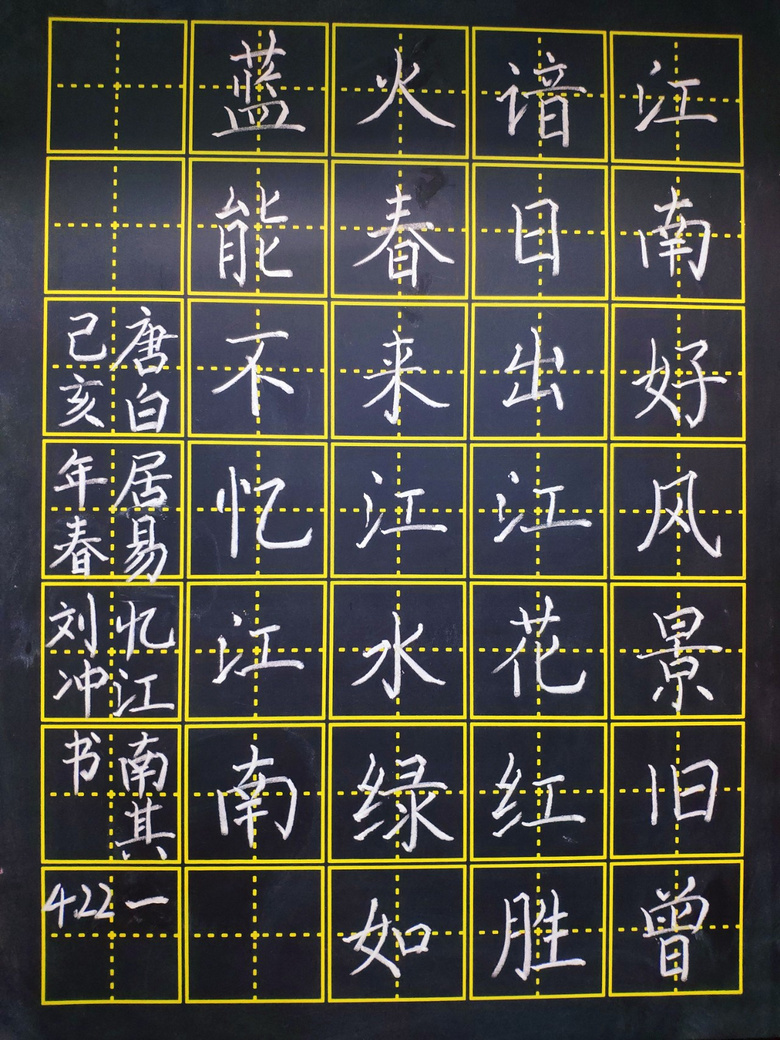 江南好风景旧曾
谙日出江花红胜
火春来江水绿如
蓝能不忆江南
唐白居易忆江南其一
己亥年春刘冲书
4.22